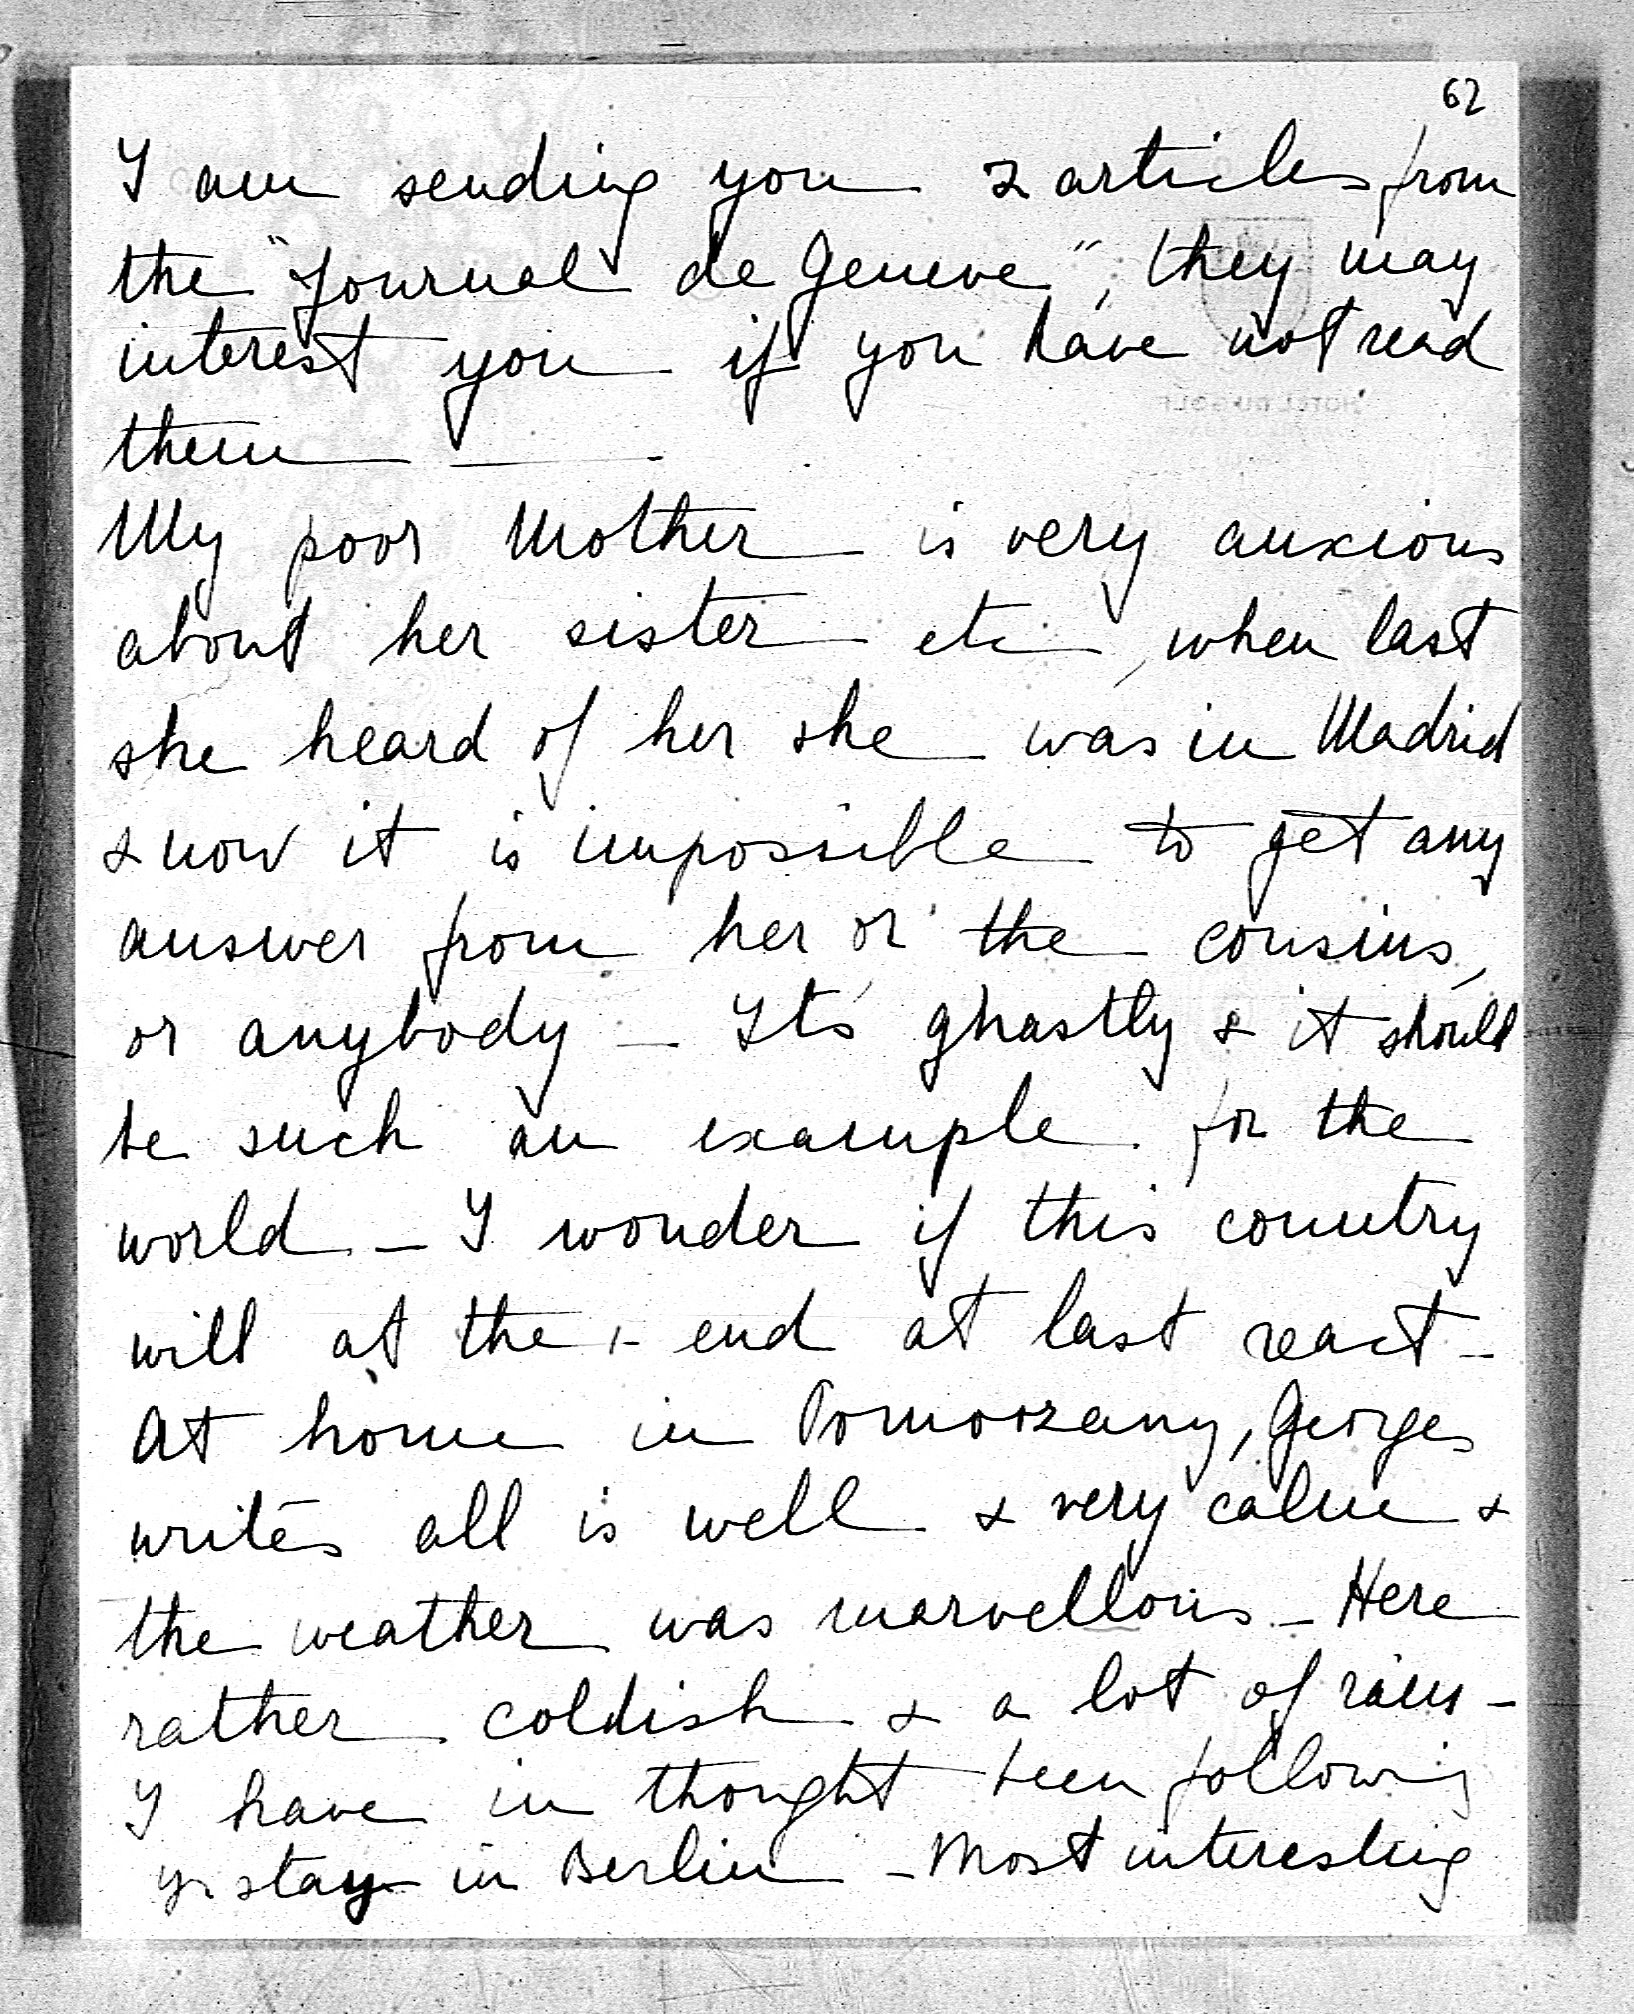 62
I am sending you 2 articles from
the "Journal de Geneve", they may
interest you if you have not read
them
My poor Mother is very anxious
about her sister etc, when last
she heard of her she was in Madrid
& now it is impossible to get any
answer from her or the cousins,
or anybody – Its ghastly & it should
be such an example for the
world – I wonder if this country
will at the end at last react –
At home in Pomorzany, Georges
writes all is well & very calm &
the weather was marvellous – Here
rather coldish & a lot of rain –
I have in thought been following
yr stay in Berlin – Most interesting